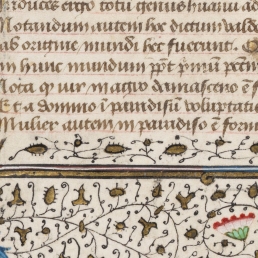 ergo toti generi humano
Notandum autem hec dictum valde
ab origine mundi hec fuerunt.
in hunc mundum p̄t p̄mū
Nota q̄ vir in agro damasceno e
Et a domino ī paradisum voluptati
Mulier autem in paradiso ē form